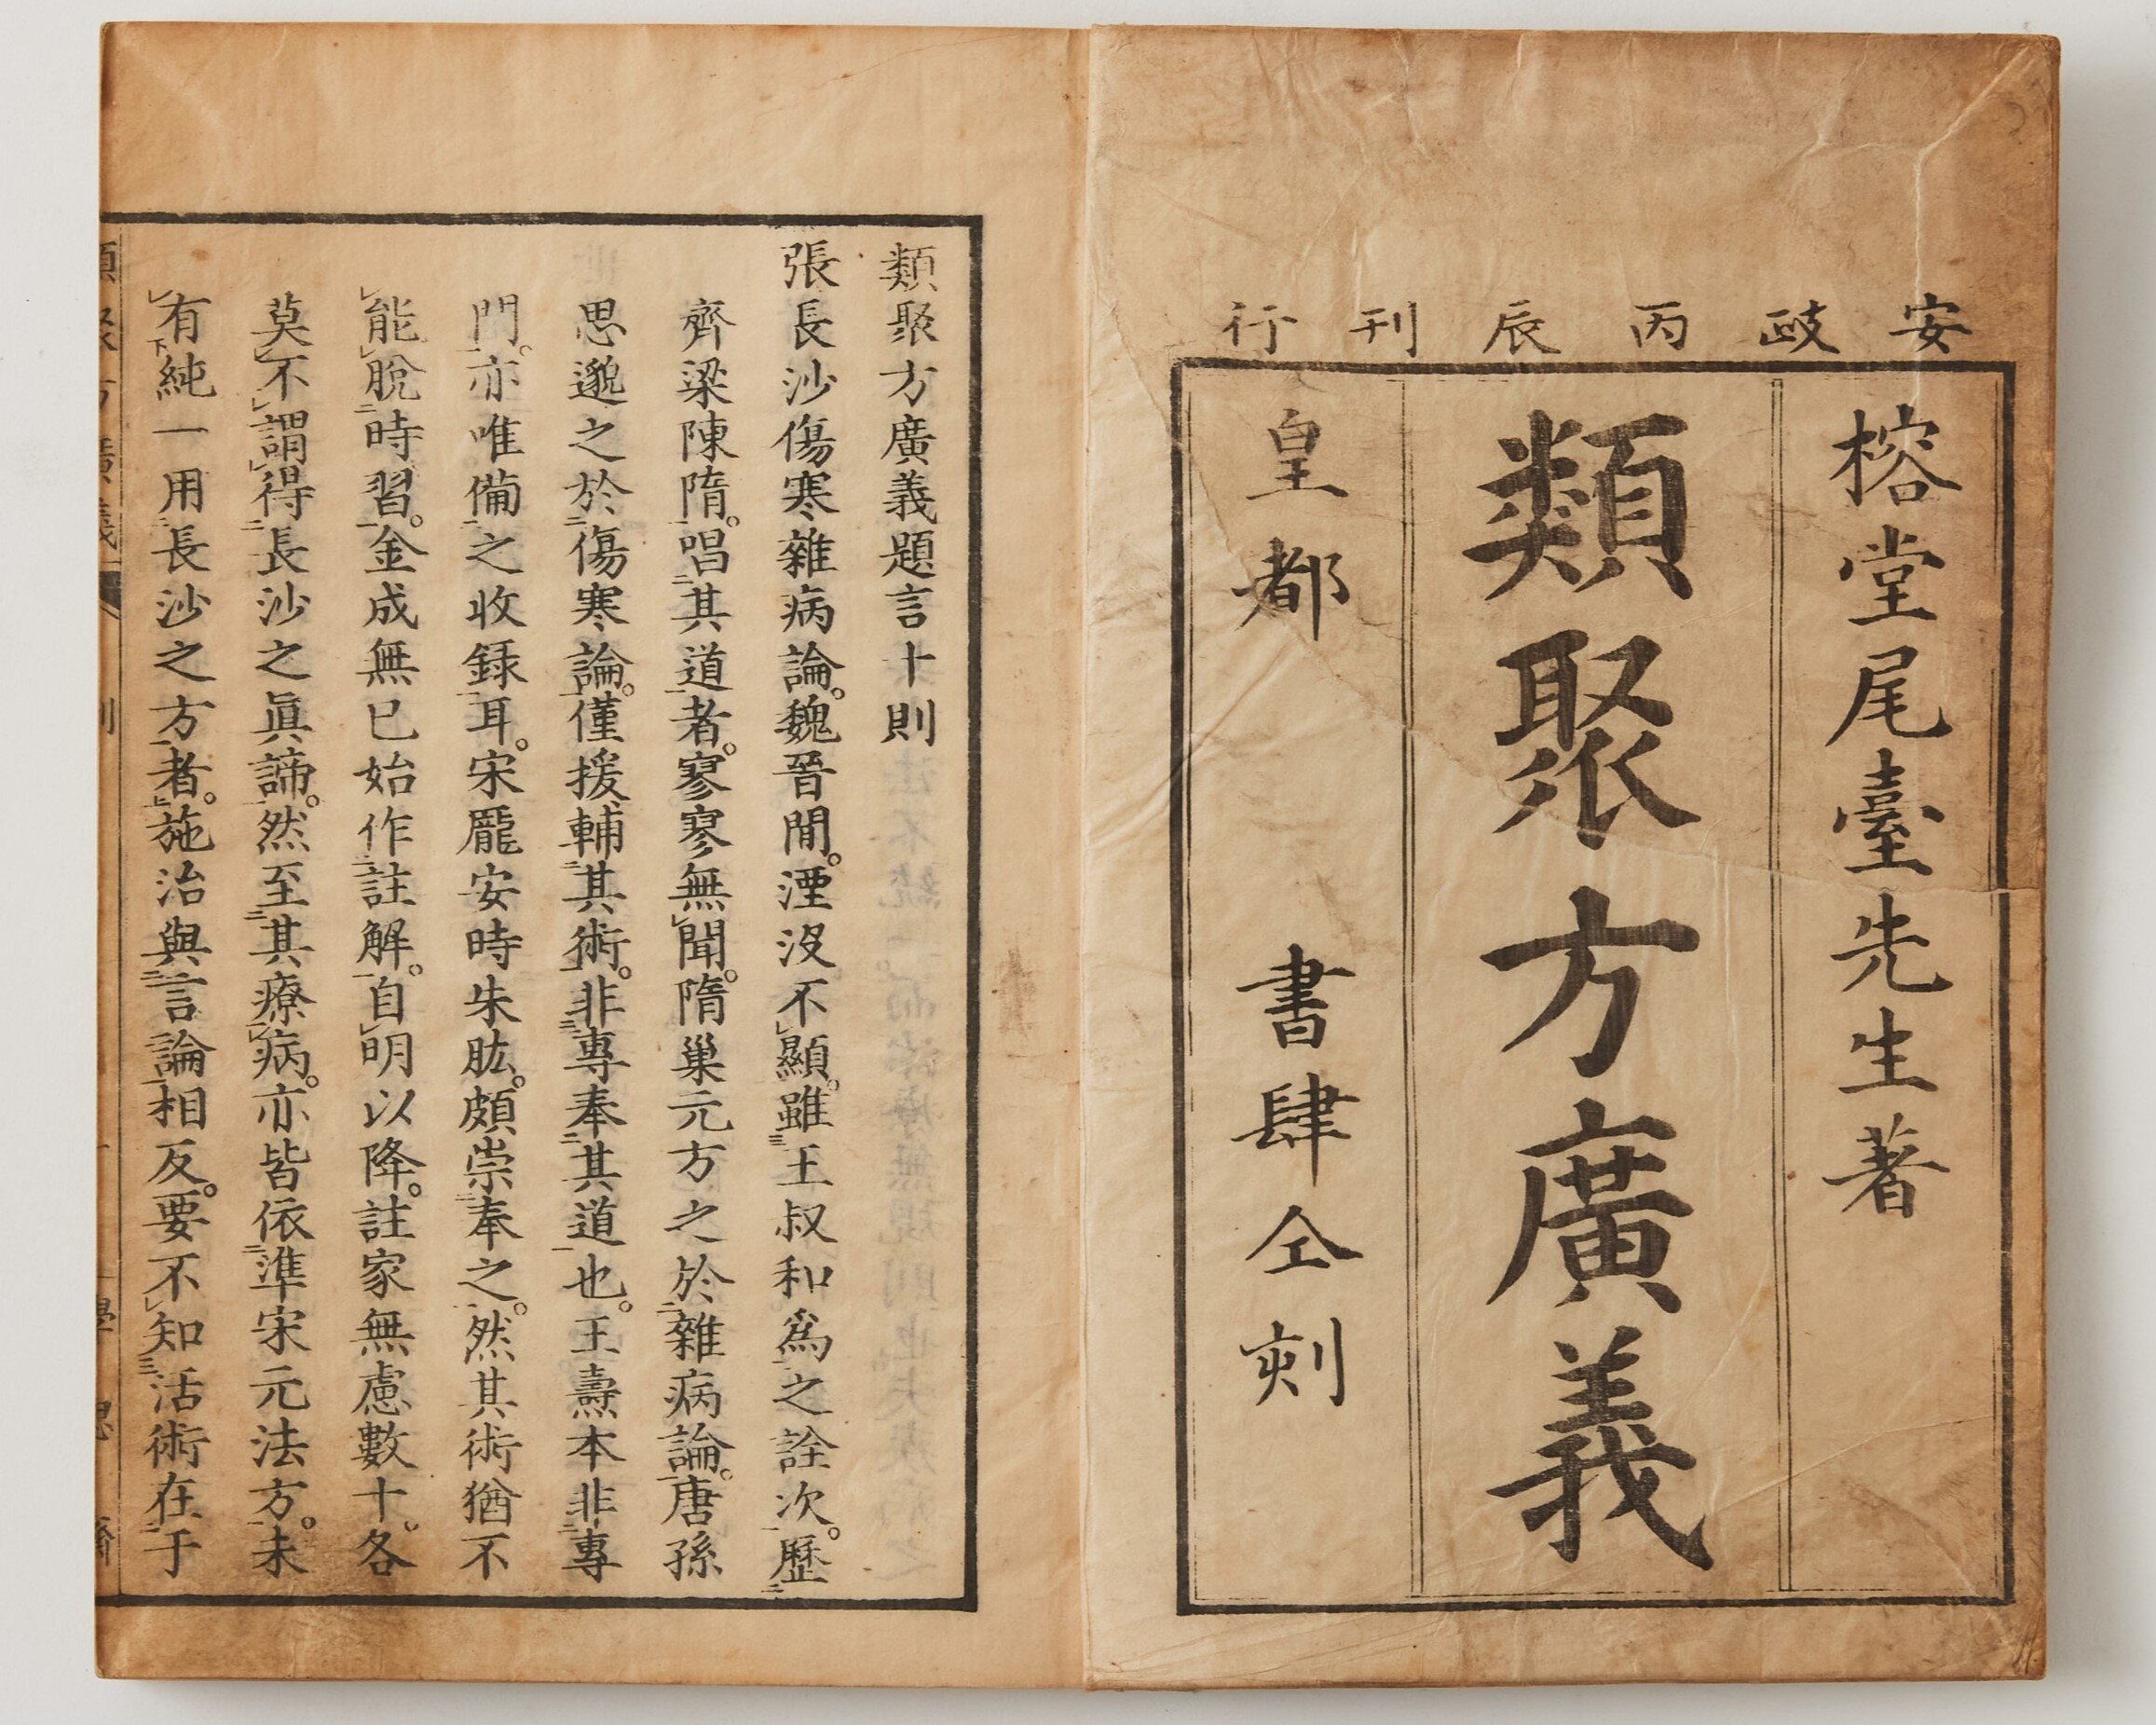 安政丙辰刊行
榕堂尾臺先生著
類聚方廣義
皇都 書肆仝刻
類聚方廣義題言十則
張長沙傷寒雜病論。魏晉間。湮沒不顯。雖王叔和爲之詮次。歷
齊梁陳隋。唱其道者。寥寥無聞。隋巢元方之於雜病論。唐孫
思邈之於傷寒論。僅援輔其術。非專奉其道也。王燾本非專
門。亦唯備之收錄耳。宋龐安時朱肱。頗崇奉之。然其術猶不
能脫時習。金成無已始作註解。自明以降。註家無慮數十。各
莫不謂得長沙之眞諦。然至其療病。亦皆依準宋元法方。未
有純一用長沙之方者。施治與言論相反。要不知活術在于
類聚方廣義